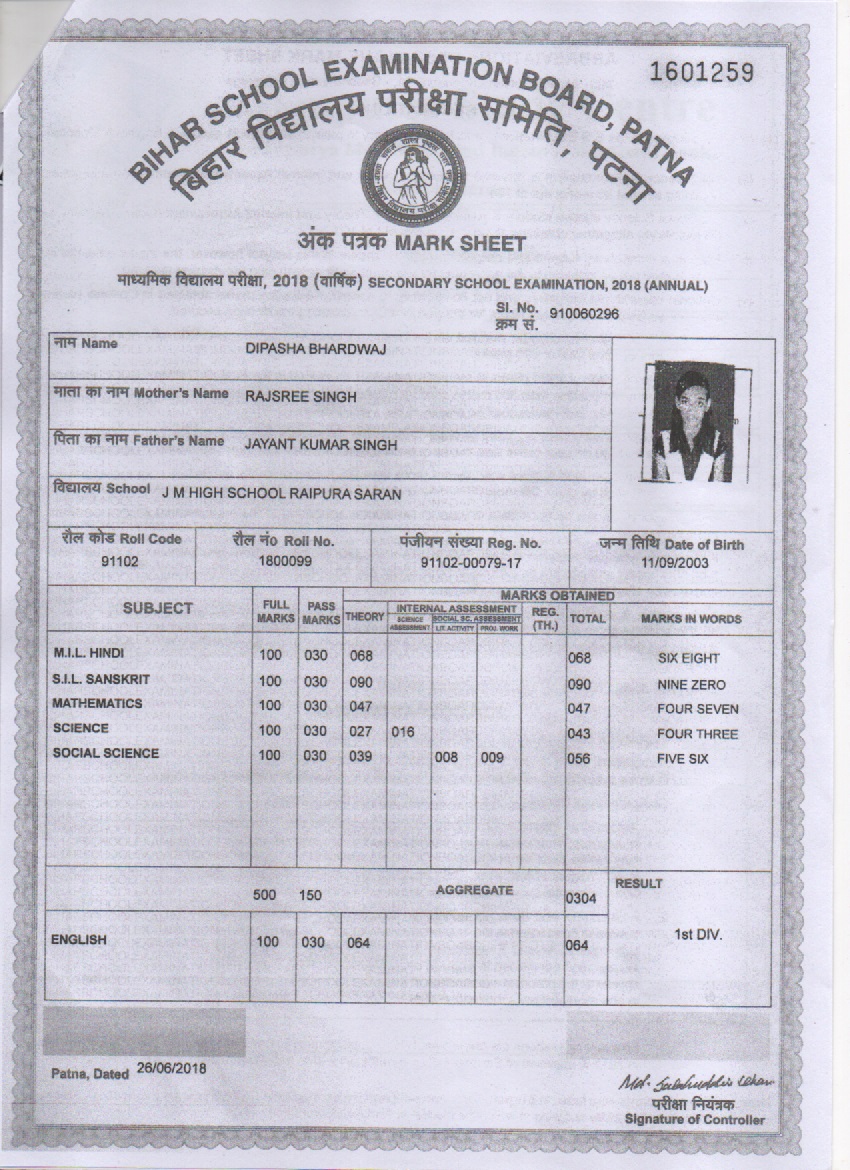 1601259
BIHAR SCHOOL EXAMINATION BOARD, PATNA
बिहार विद्यालय परीक्षा समिति, पटना
अंक पत्रक MARK SHEET
माध्यमिक विद्यालय परीक्षा, 2018 (वार्षिक) SECONDARY SCHOOL EXAMINATION, 2018 (ANNUAL)
Sl. No. 910060296
क्रम सं.
नाम Name DIPASHA BHARDWAJ
माता का नाम Mother's Name RAJSREE SINGH
पिता का नाम Father's Name JAYANT KUMAR SINGH
विद्यालय School J M HIGH SCHOOL RAIPURA SARAN
रौल कोड Roll Code रौल नं० Roll No. पंजीयन संख्या Reg. No. जन्म तिथि Date of Birth
91102 1800099 91102-00079-17 11/09/2003
MARKS OBTAINED
SUBJECT FULL MARKS PASS MARKS THEORY INTERNAL ASSESSMENT REG. (TH.) TOTAL MARKS IN WORDS
SCIENCE ASSESSMENT SOCIAL SC. ASSESSMENT
LIT. ACTIVITY PROJ. WORK
M.I.L. HINDI 100 030 068 068 SIX EIGHT
S.I.L. SANSKRIT 100 030 090 090 NINE ZERO
MATHEMATICS 100 030 047 047 FOUR SEVEN
SCIENCE 100 030 027 016 043 FOUR THREE
SOCIAL SCIENCE 100 030 039 008 009 056 FIVE SIX
500 150 AGGREGATE 0304 RESULT
ENGLISH 100 030 064 064 1st DIV.
Patna, Dated 26/06/2018
परीक्षा नियंत्रक
Signature of Controller